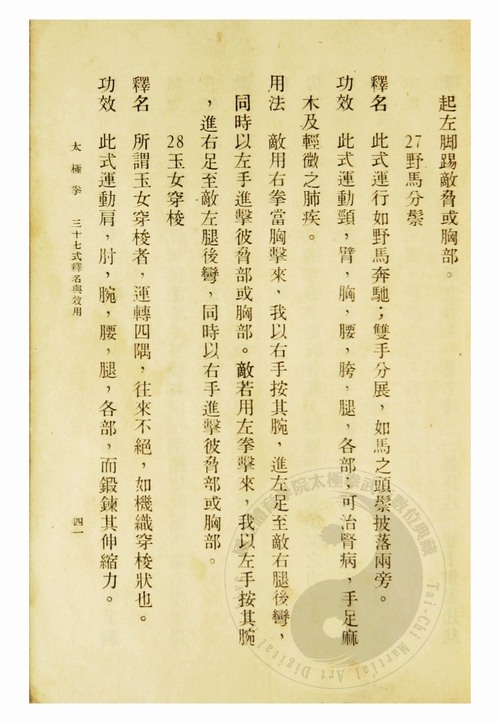 起左脚踢敵脅或胸部。
27野馬分鬃
釋名　此式運行如野馬奔馳；雙手分展，如馬之頭鬃披落兩旁。
功效　此式運動頸，臂，胸，腰，胯，腿，各部；可治腎病，手足麻
木及輕微之肺疾。
用法　敵用右拳當胸擊來，我以右手按其腕，進左足至敵右腿後彎，
同時以左手進擊彼脅部或胸部。敵若用左拳擊來，我以左手按其腕
，進右足至敵左腿後彎，同時以右手進擊彼脅部或胸部。
28玉女穿梭
釋名　所謂玉女穿梭者，運轉四隅，往來不絕，如機織穿梭狀也。
功效　此式運動肩，肘，腕，腰，腿，各部，而鍛鍊其伸縮力。
太極拳　三十七式釋名與效用
四一
Tai-Chi Martial Art Digital